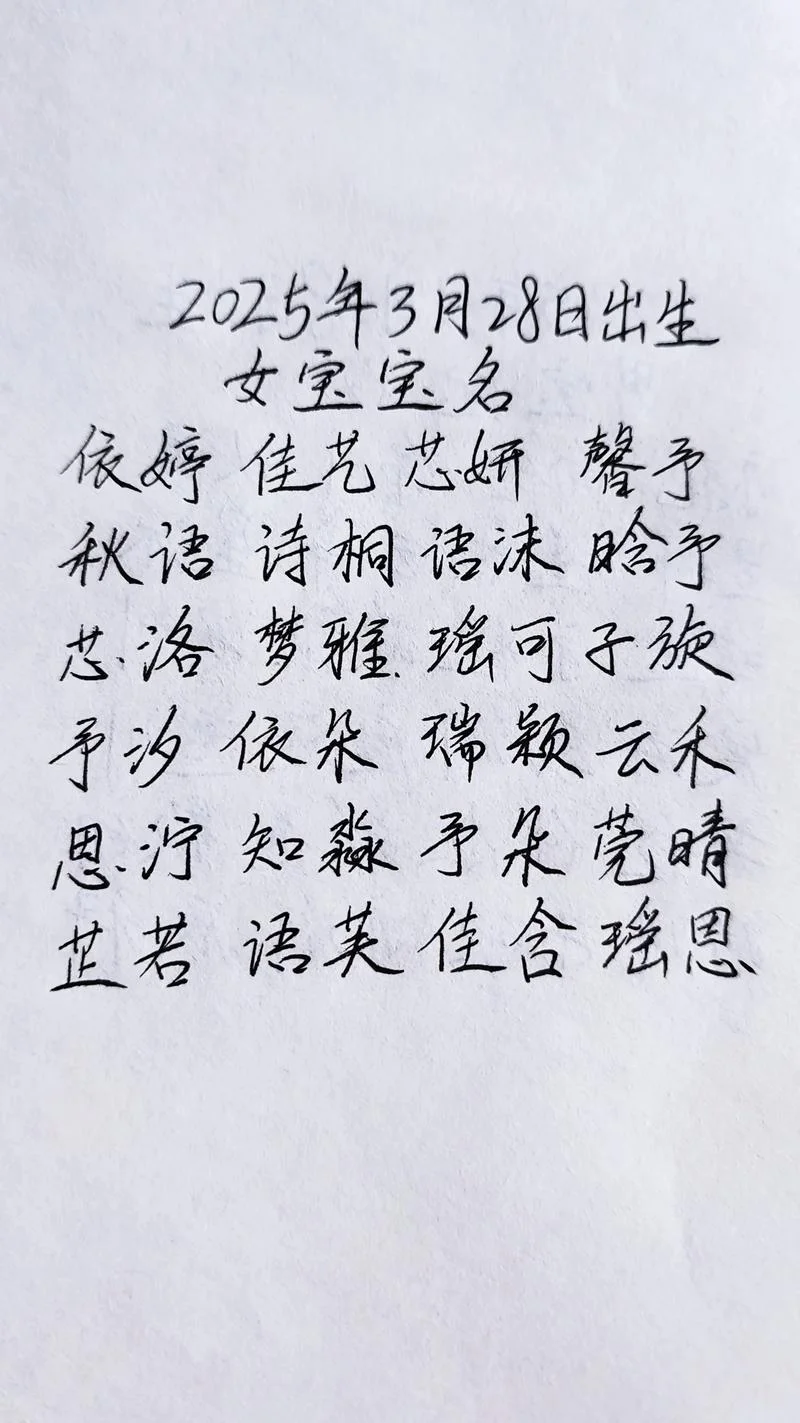 2025年3月28日出生
女宝宝名
依婷 佳艺 芯妍 馨予
秋语 诗桐 语沫 晗予
芯洛 梦雅 瑶可 子旋
予汐 依朵 瑞颖 云禾
恩泞 知淼 予朵 莞晴
芷若 语芙 佳含 瑶恩